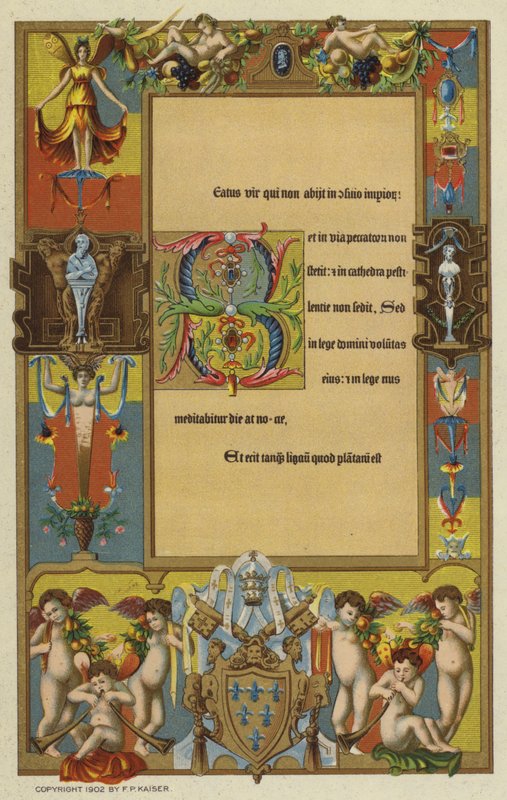 Eatus vir qui non abijt in ɔsilio impioꝝ:
B et in via peccatorū non
stetit: ⁊ in cathedra pesti-
lentie non sedit, Sed
in lege domini volūtas
eius: ⁊ in lege eius
meditabitur die at no- cte,
Et erit tanqȝ lignū quod plātatū est
COPYRIGHT 1902 BY F. P. KAISER.